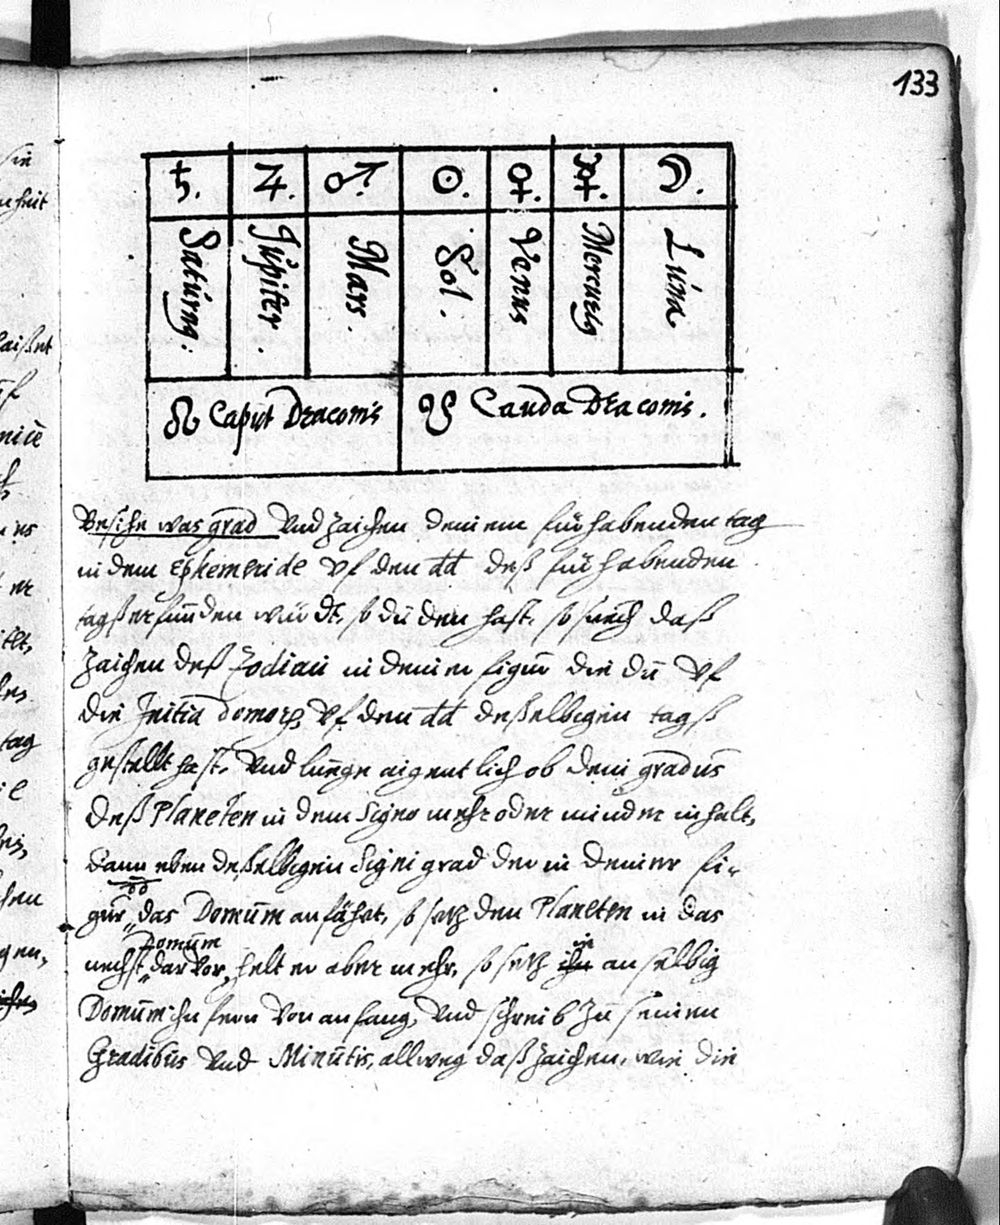 133
♄. ♃. ♂. ☉. ♀. ☿. ☽.
Saturn9. Jupiter. Mars. Sol. Venus Mercuri9 Luna
☊ Caput Draconis ☋ Cauda Draconis.
Besihe was grad Vnd zaichen deinem fürhabenden tag
in dem Ephemeride Vf den dd deß fürhabenden
tagß erfunden würdt, so du den hast, so such daß
Zaichen deß Zodiaci in deiner figur die du Vf
die Initia domorum Vf den dd deßelbigen tagß
gestellt hast, Vnd luege aigentlich ob dein gradus
deß Planeten in dem Signo mehr oder minder inhalt,
dann eben deßelbigen Signi grad der in deiner fi-
gur das Domum anfahet, so setz den Planeten in das
nechst Domum darvor, helt er aber mehr, so setz in an selbig
Domum ihn fern Von anfang, Vnd schreib Zu seinen
Gradibus Vnd Minutis, allweg daß Zaichen, wie die